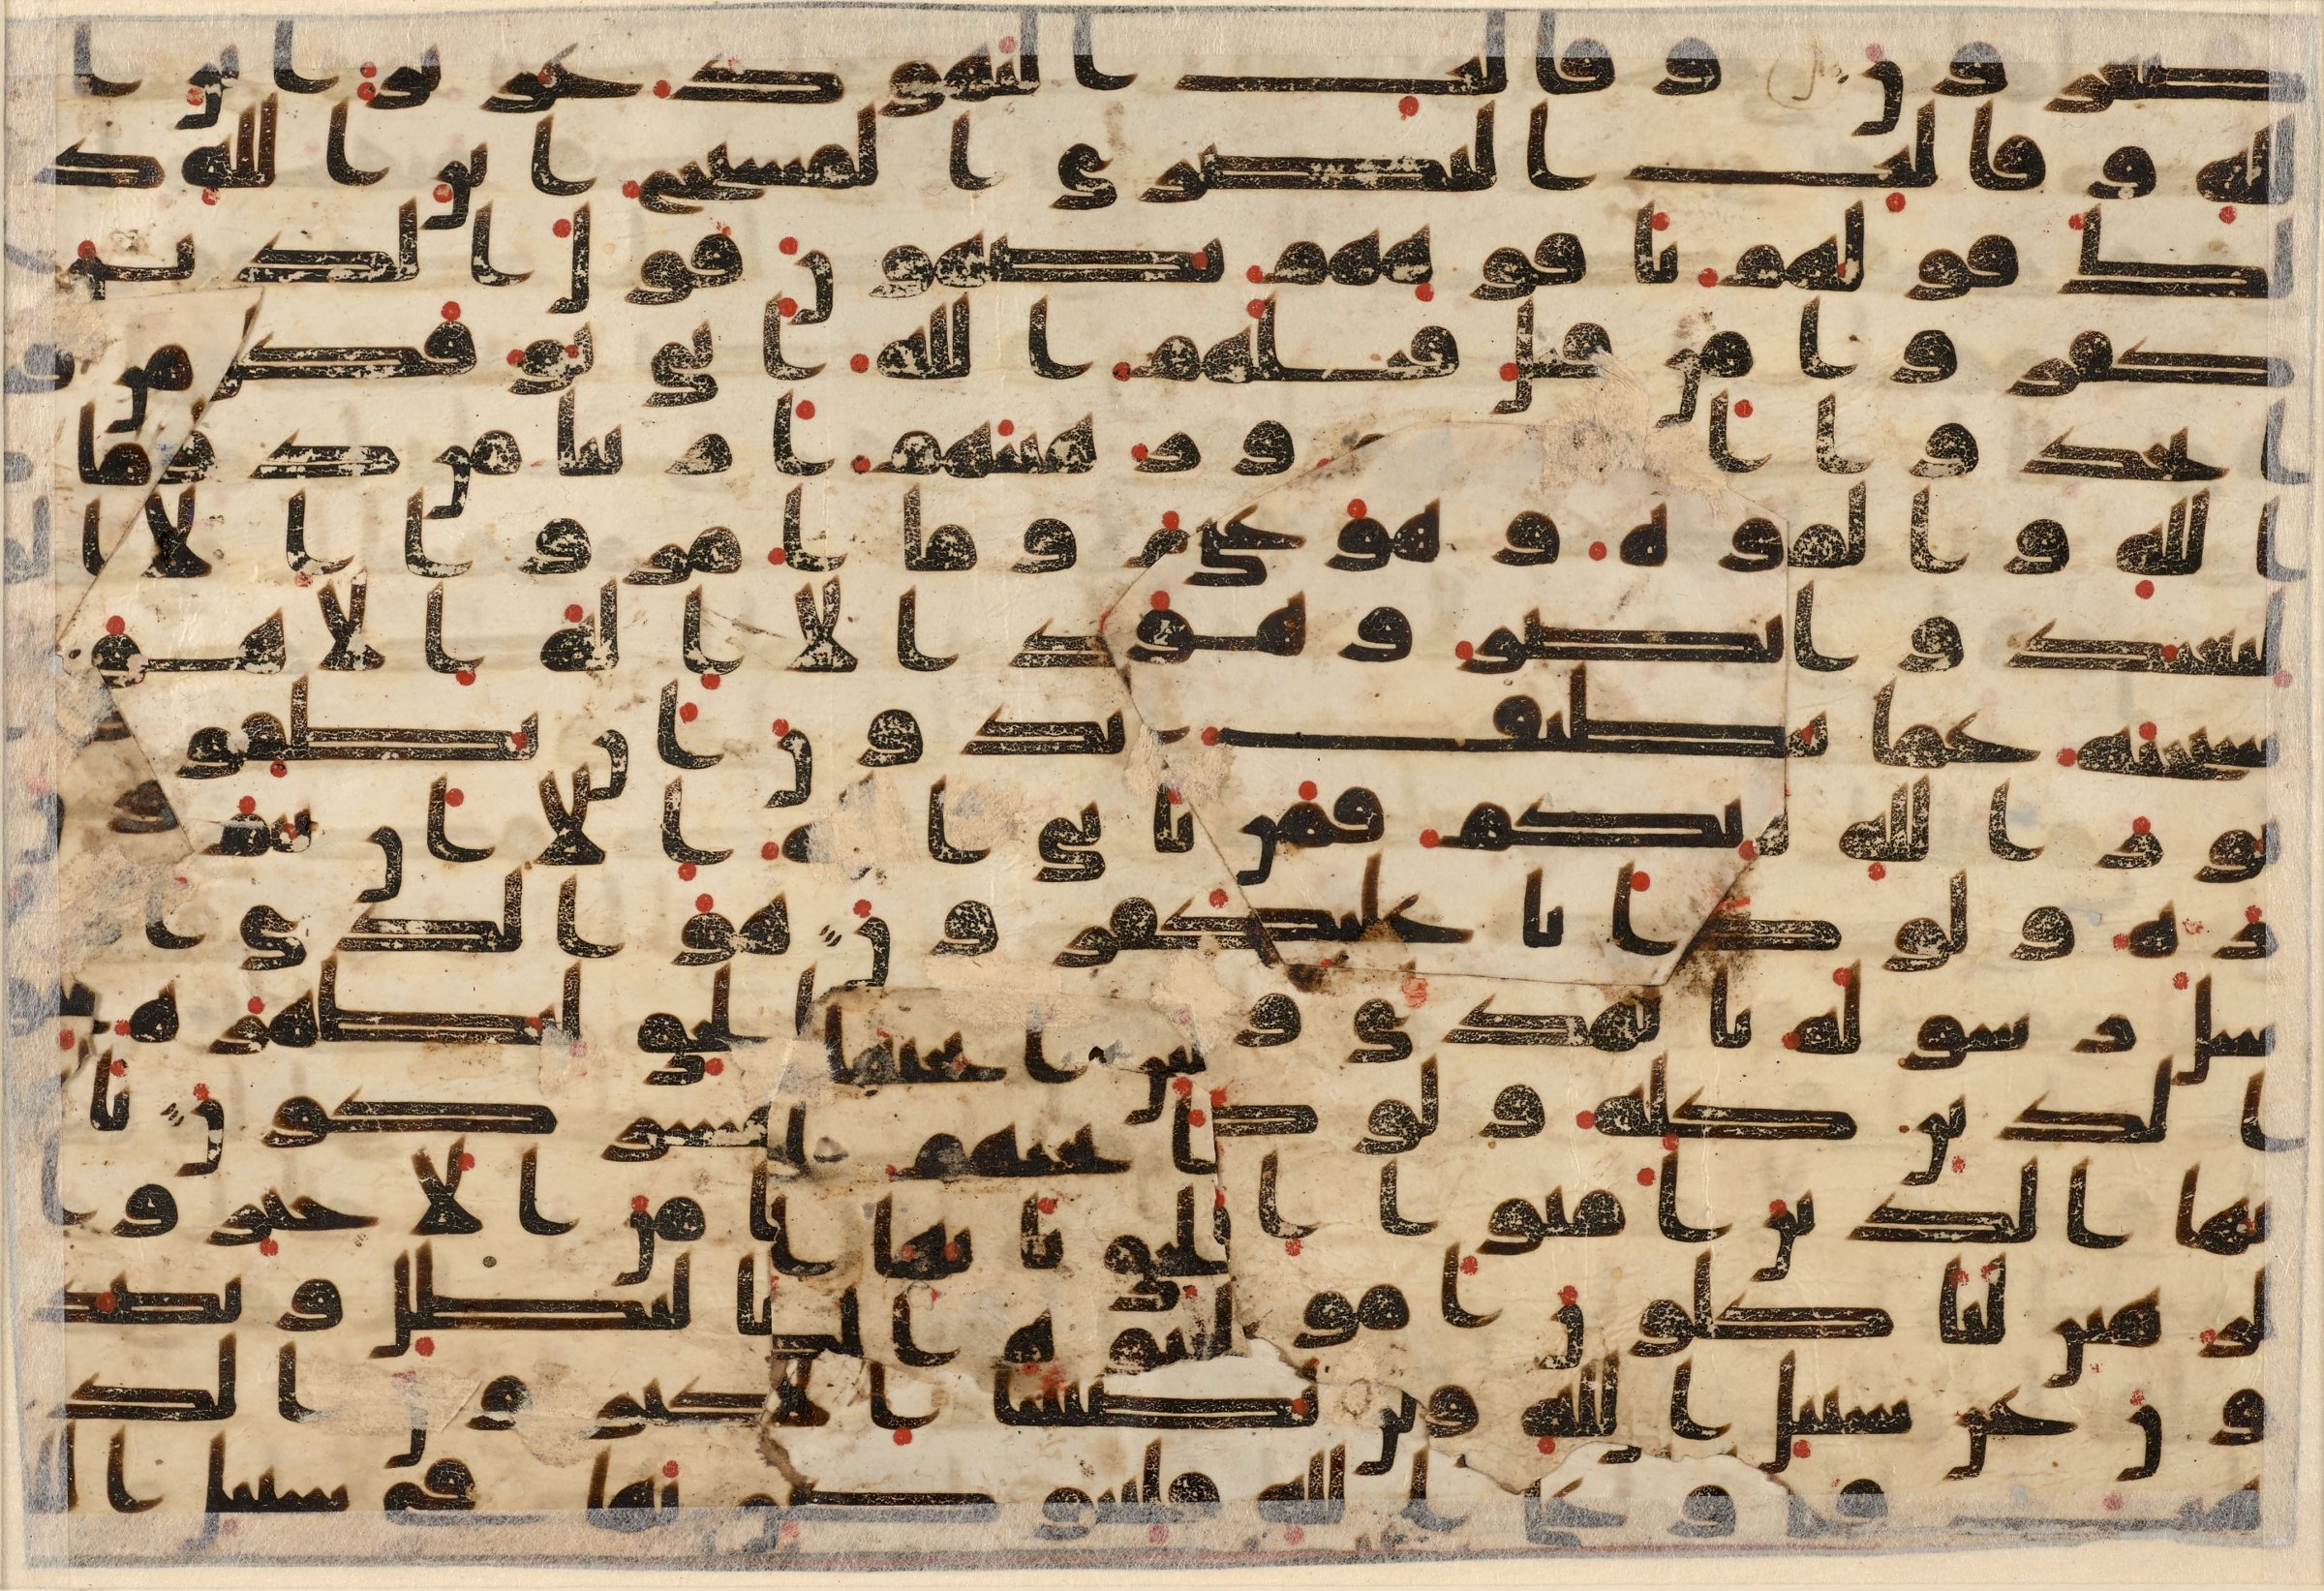 صغرون وقالت اليهود عزير ابن ا
لله وقالت النصرى المسيح ابن الله ذ
لك قولهم بافوههم يضهون قول الذين
كفروا من قبل قتلهم الله انى يوفكون
ا تخذوا احبرهم ورهبنهم اربابا من دون
ا لله والمسيح ابن مريم وما امروا الا
ليعبدوا الها وحدا لا اله الا هو
سبحنه عما يشركون يريدون ان يطفوا
نور الله بافوههم ويابى الله الا ان يتم
نوره ولو كره الكفرون هو الذي ا
رسل رسوله بالهدى ودين الحق ليظهره على
ا لدين كله ولو كره المشركون يا
يها الذين امنوا ان كثيرا من الاحبر و ا
لرهبن لياكلون امول الناس بالبطل ويصد
ون عن سبيل الله والذين يكنزون الذ
هب والفضة ولا ينفقونها في سبيل الله